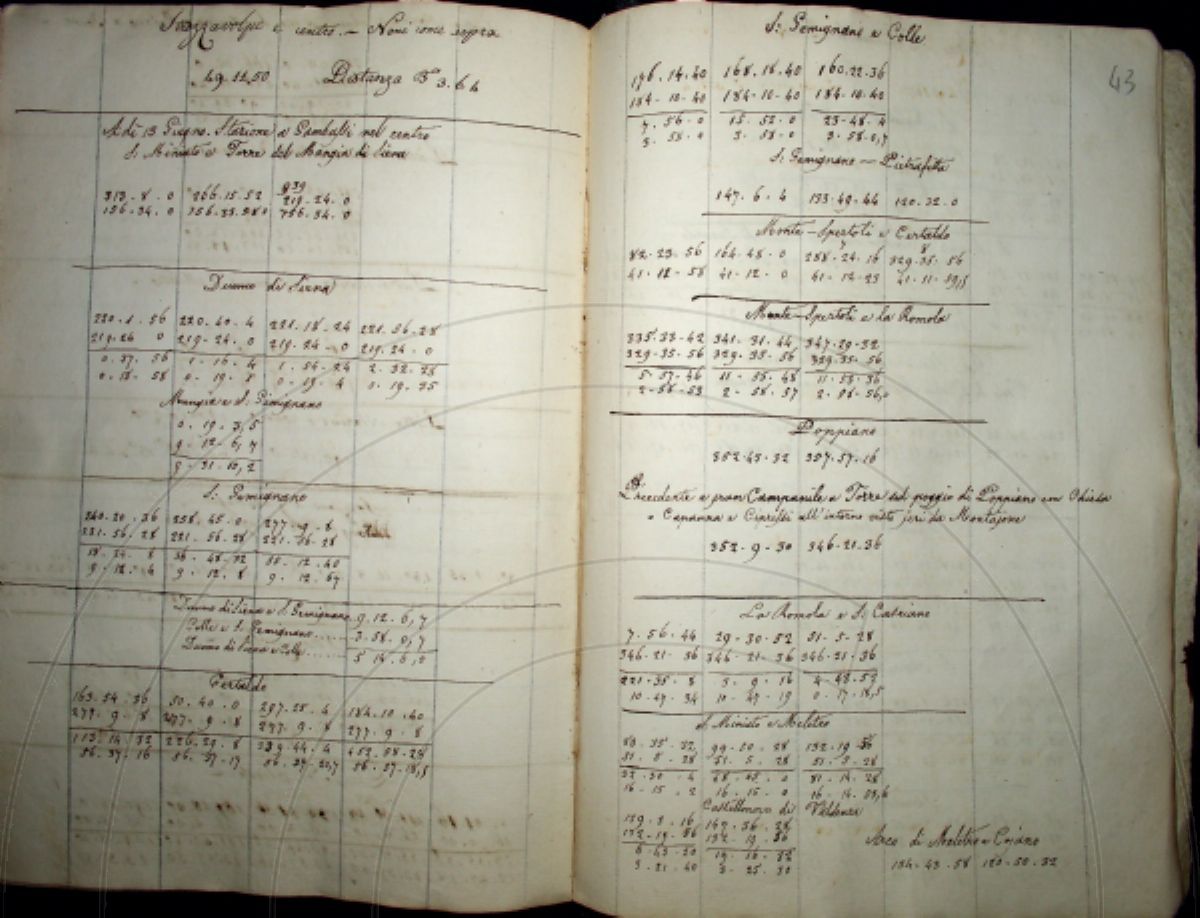 e centro. — Nomi come sopra
49.12.50 Distanza 3.64
A dì 13 Giugno. Stazione a Gambassi nel centro
S. Miniato e Torre del Mangia di Siena
313 . 8 . 0 266.15.52 219.24.0
156.34.0 156.34.0
Duomo di Siena
220.1.56 220.40.4 221.18.24 221.56.28
219.24 0 219.24.0 219.24.0 219.24.0
0.37.56 1.16.4 1.54.24 2.32.28
0.18.58 0.19.8 0.19.4 0.19.25
Mangia e S. Gimignano
0.19.3,5
9.12.6,7
9.31.10,2
S. Gemignano
240.20.36 258.45.0 277.9.8
221.56.28 221.56.28 221.56.28
18.24.8 36.48.32 55.12.40
9.12.4 9.12.8 9.12.6,7
Duomo di Siena e S. Gemignano 9.12.6,7
Colle e S. Gemignano ...... 3.58.0,7
Duomo di Siena e Colle ...... 5.14.6,0
Certaldo
163.54.36 50.40.0 297.25.4 184.10.40
277.9.8 277.9.8 277.9.8 277.9.8
113.14.32 226.29.8 339.44.4 452.58.28
56.37.16 56.37.17 56.37.20,7 56.37.18,5
43
S. Gemignano e Colle
176.14.40 168.18.40 160.22.36
184.10.40 184.10.40 184.10.40
7.56.0 15.52.0 23.48.4
3.58.0 3.58.0 3.58.0,7
S. Gemignano — Pietrafitta
147.6.4 133.49.44 120.32.0
Monte-Spertoli e Certaldo
82.23.56 164.48.0 329.35.56
41.12.58 41.12.0 41.12.23 41.11.59,5
Monte-Spertoli e la Romola
335.33.42 341.31.44 347.29.32
329.35.56 329.35.56 329.35.56
5.57.46 11.55.48
2.58.53 2.58.57 2.58.56,0
Poppiano
352.43.32 357.57.16
Precedente e gran Campanile a Torre del poggio di Poppiano con Chiesa
e Capanna e Cipressi all'intorno visto jeri da Montajone
352.9.30 346.21.36
La Romola e S. Casciano
7.56.44 29.30.52 51.5.28
346.21.36 346.21.36 346.21.36
221.35.8 3.9.16
10.47.34 10.47.19 0.17.18,5
S. Miniato e Meleto
83.35.32 99.50.28 132.19.56
51.5.28 51.5.28 51.5.28
32.30.4 48.45.0 81.14.28
16.15.2 16.15.0 16.14.53,6
Castelnovo di
139.3.16 149.36.28
132.19.56 132.19.56
6.43.20 17.16.32
3.21.40 3.25.30
Arco di Meleto e Cojano
134.43.58 120.50.32